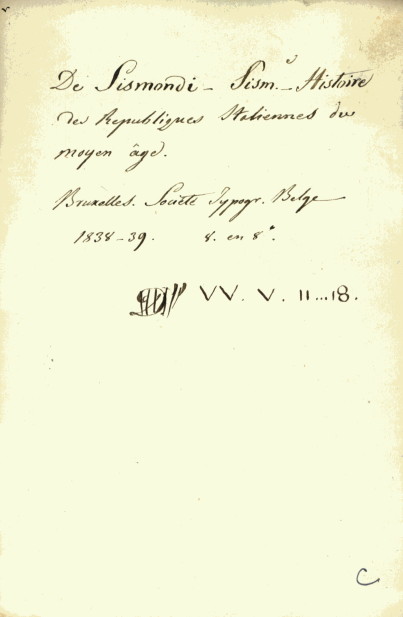 De Sismondi - Sism. - Histoire
des Republiques Italiennes du
moyen âge.
Bruxelles. Societe Typogr. Belge
1838-39. 8. en 8°.
VV. V. 11...18.
C